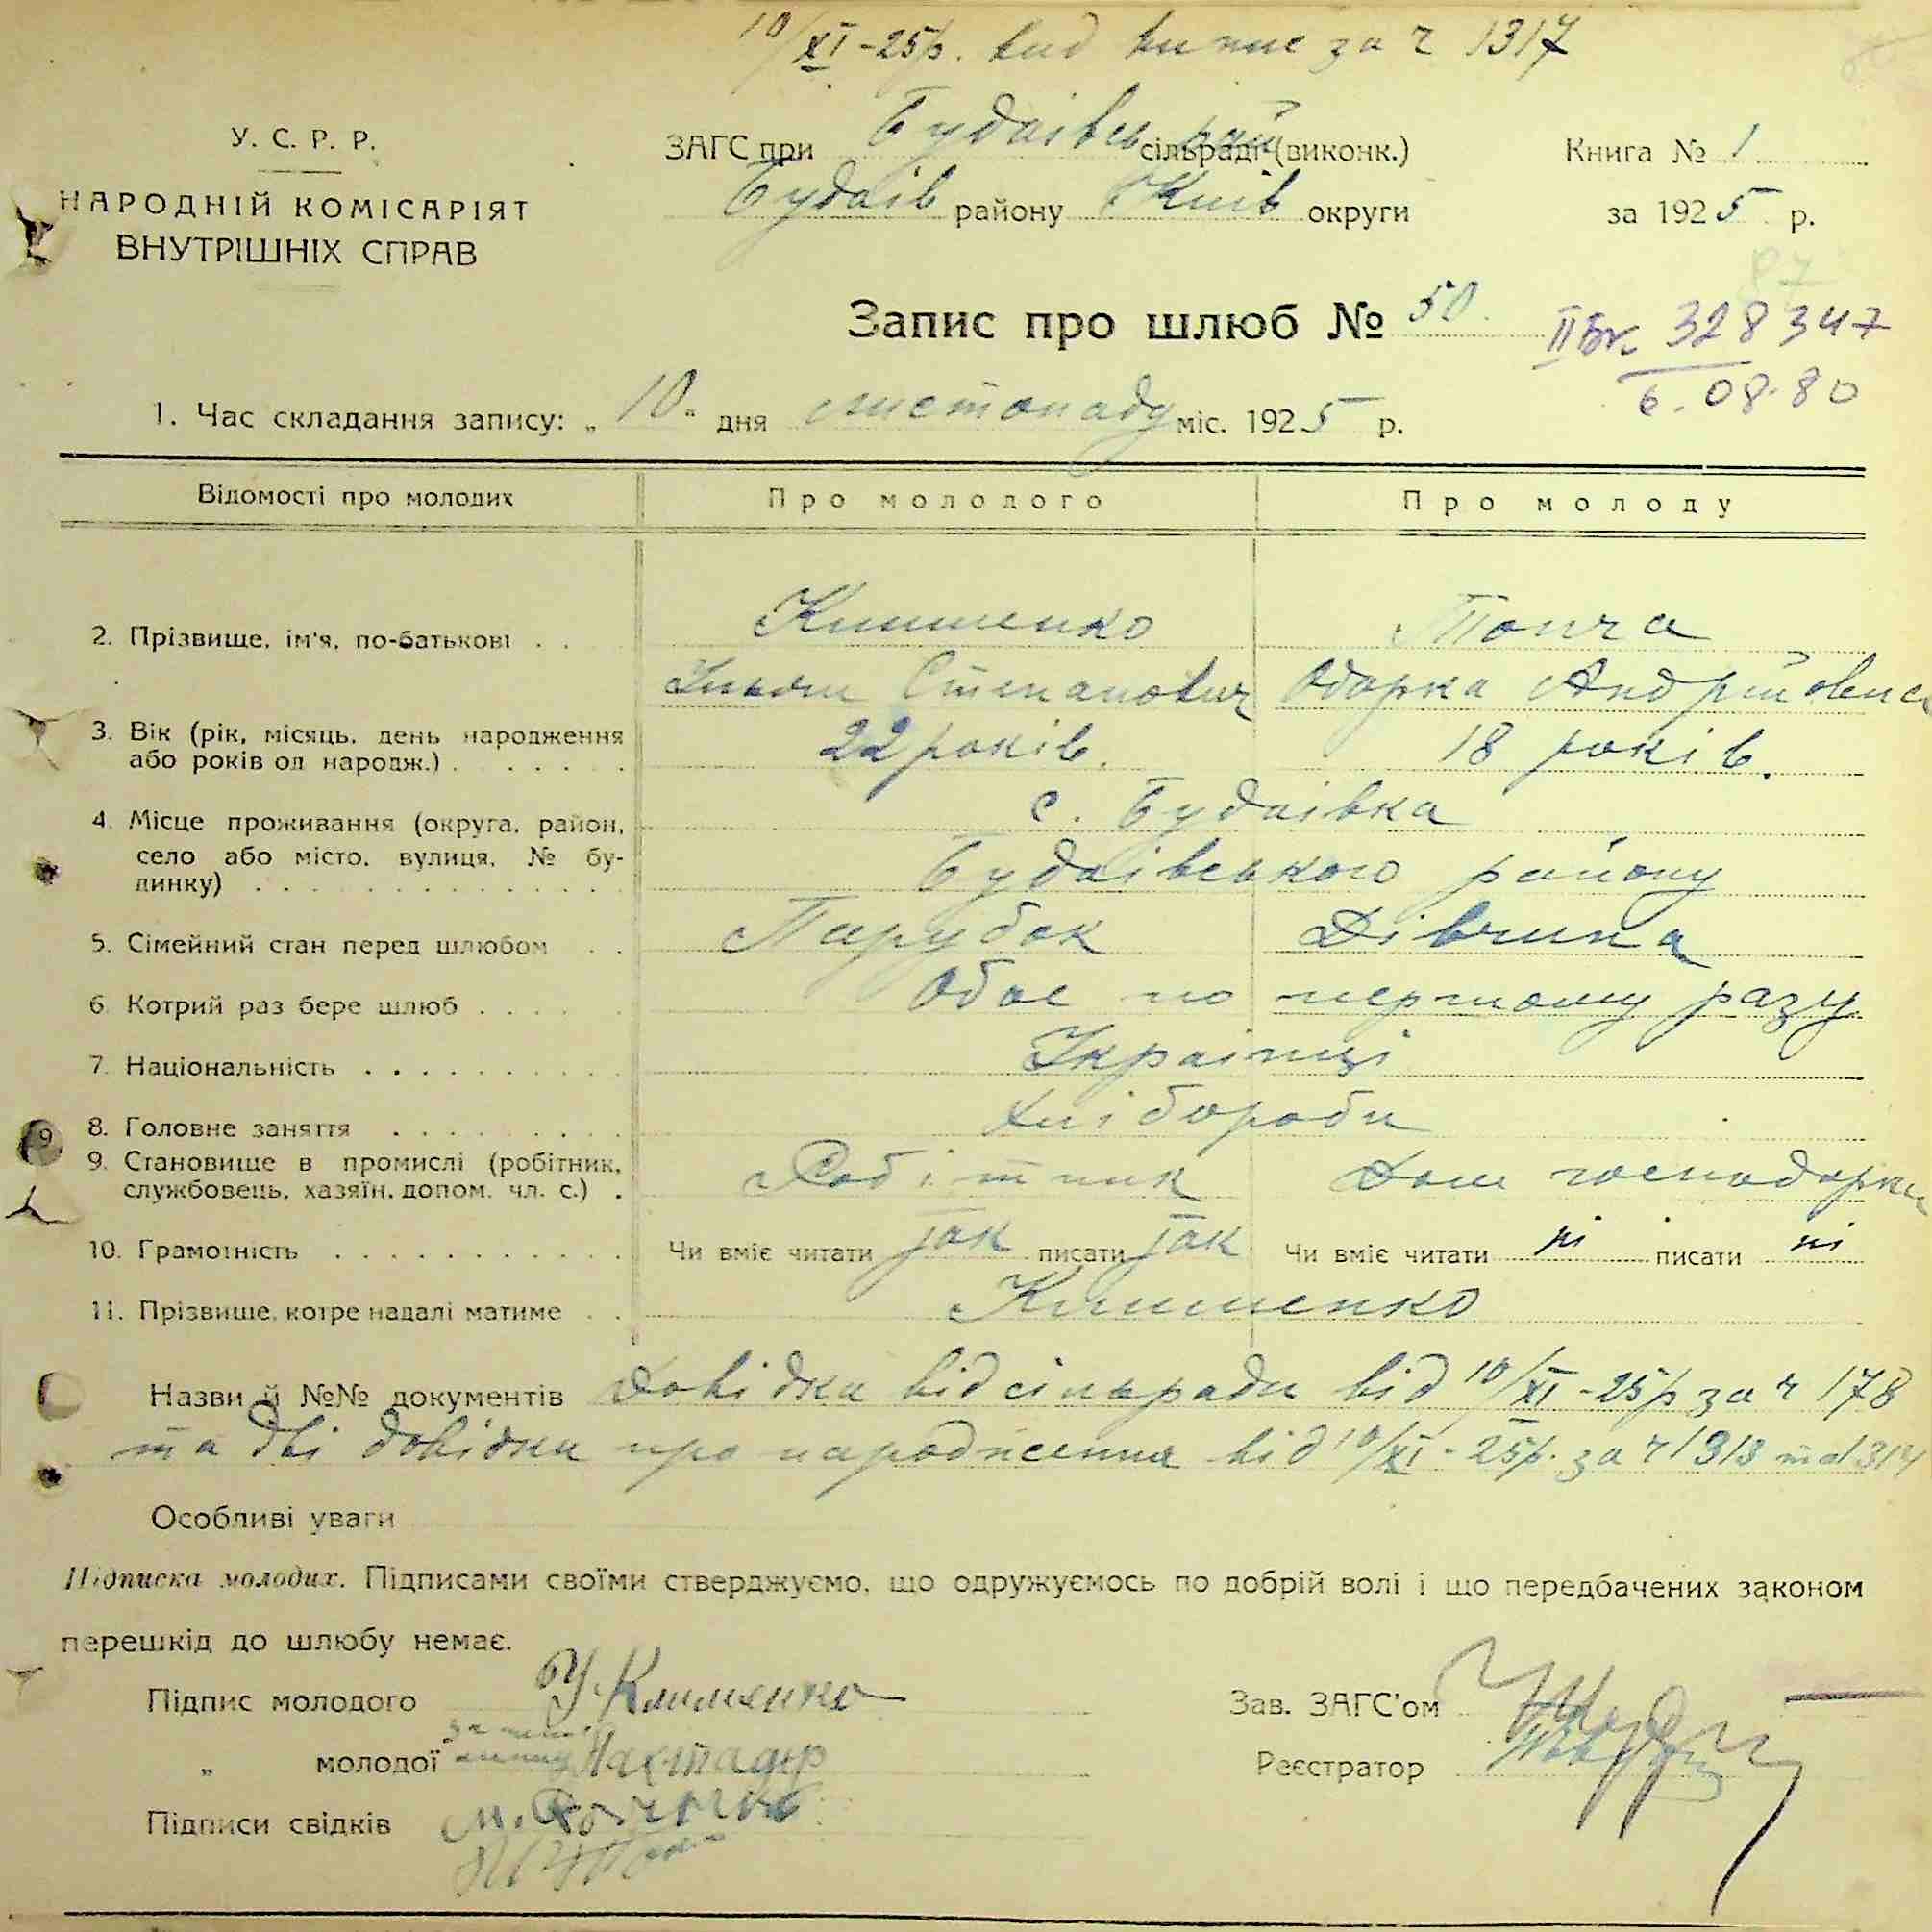 10/XI-25р. вид випис за ч 1317
У. С. Р. Р.
НАРОДНІЙ КОМІСАРІЯТ
ВНУТРІШНІХ СПРАВ
ЗАГС при Будаївськ рай сільраді (виконк.)
Будаїв району Київ округи
Книга № 1
за 1925 р.
87
Запис про шлюб № 50
II БК 328347
6.08.80
1. Час складання запису: „10" дня листопаду міс. 1925 р.
Відомості про молодих
Про молодого
Про молоду
2. Прізвище, ім'я, по-батькові . .
Клименко
Степанович
Тонча
Одарка Андріївна
3. Вік (рік, місяць, день народження
або років од народж.) . . . . . .
22 років.
18 років.
4. Місце проживання (округа, район,
село або місто, вулиця, № бу-
динку) . . . . . . . . . . . . .
с. Будаївка
Будаївського району
5. Сімейний стан перед шлюбом . .
Парубок
Дівчина
6. Котрий раз бере шлюб . . . . .
Обоє по першому разу
7. Національність . . . . . . . . .
Українці
8. Головне заняття . . . . . . . .
Хлібороби
9. Становище в промислі (робітник,
службовець, хазяїн, допом. чл. с.) .
Робітник
Дом господарки
10. Грамотність . . . . . . . . . . .
Чи вміє читати так писати так
Чи вміє читати ні писати ні
11. Прізвище, котре надалі матиме . .
Клименко
Назви й №№ документів Довідка від сільради від 10/XI-25р за ч 178
та дві довідки про народження від 10/XI-25р. за ч 1313 та 1314
Особливі уваги
Підписка молодих. Підписами своїми стверджуємо, що одружуємось по добрій волі і що передбачених законом
перешкід до шлюбу немає.
Підпис молодого Клименко
„ молодої
Підписи свідків
Зав. ЗАГС'ом
Реєстратор